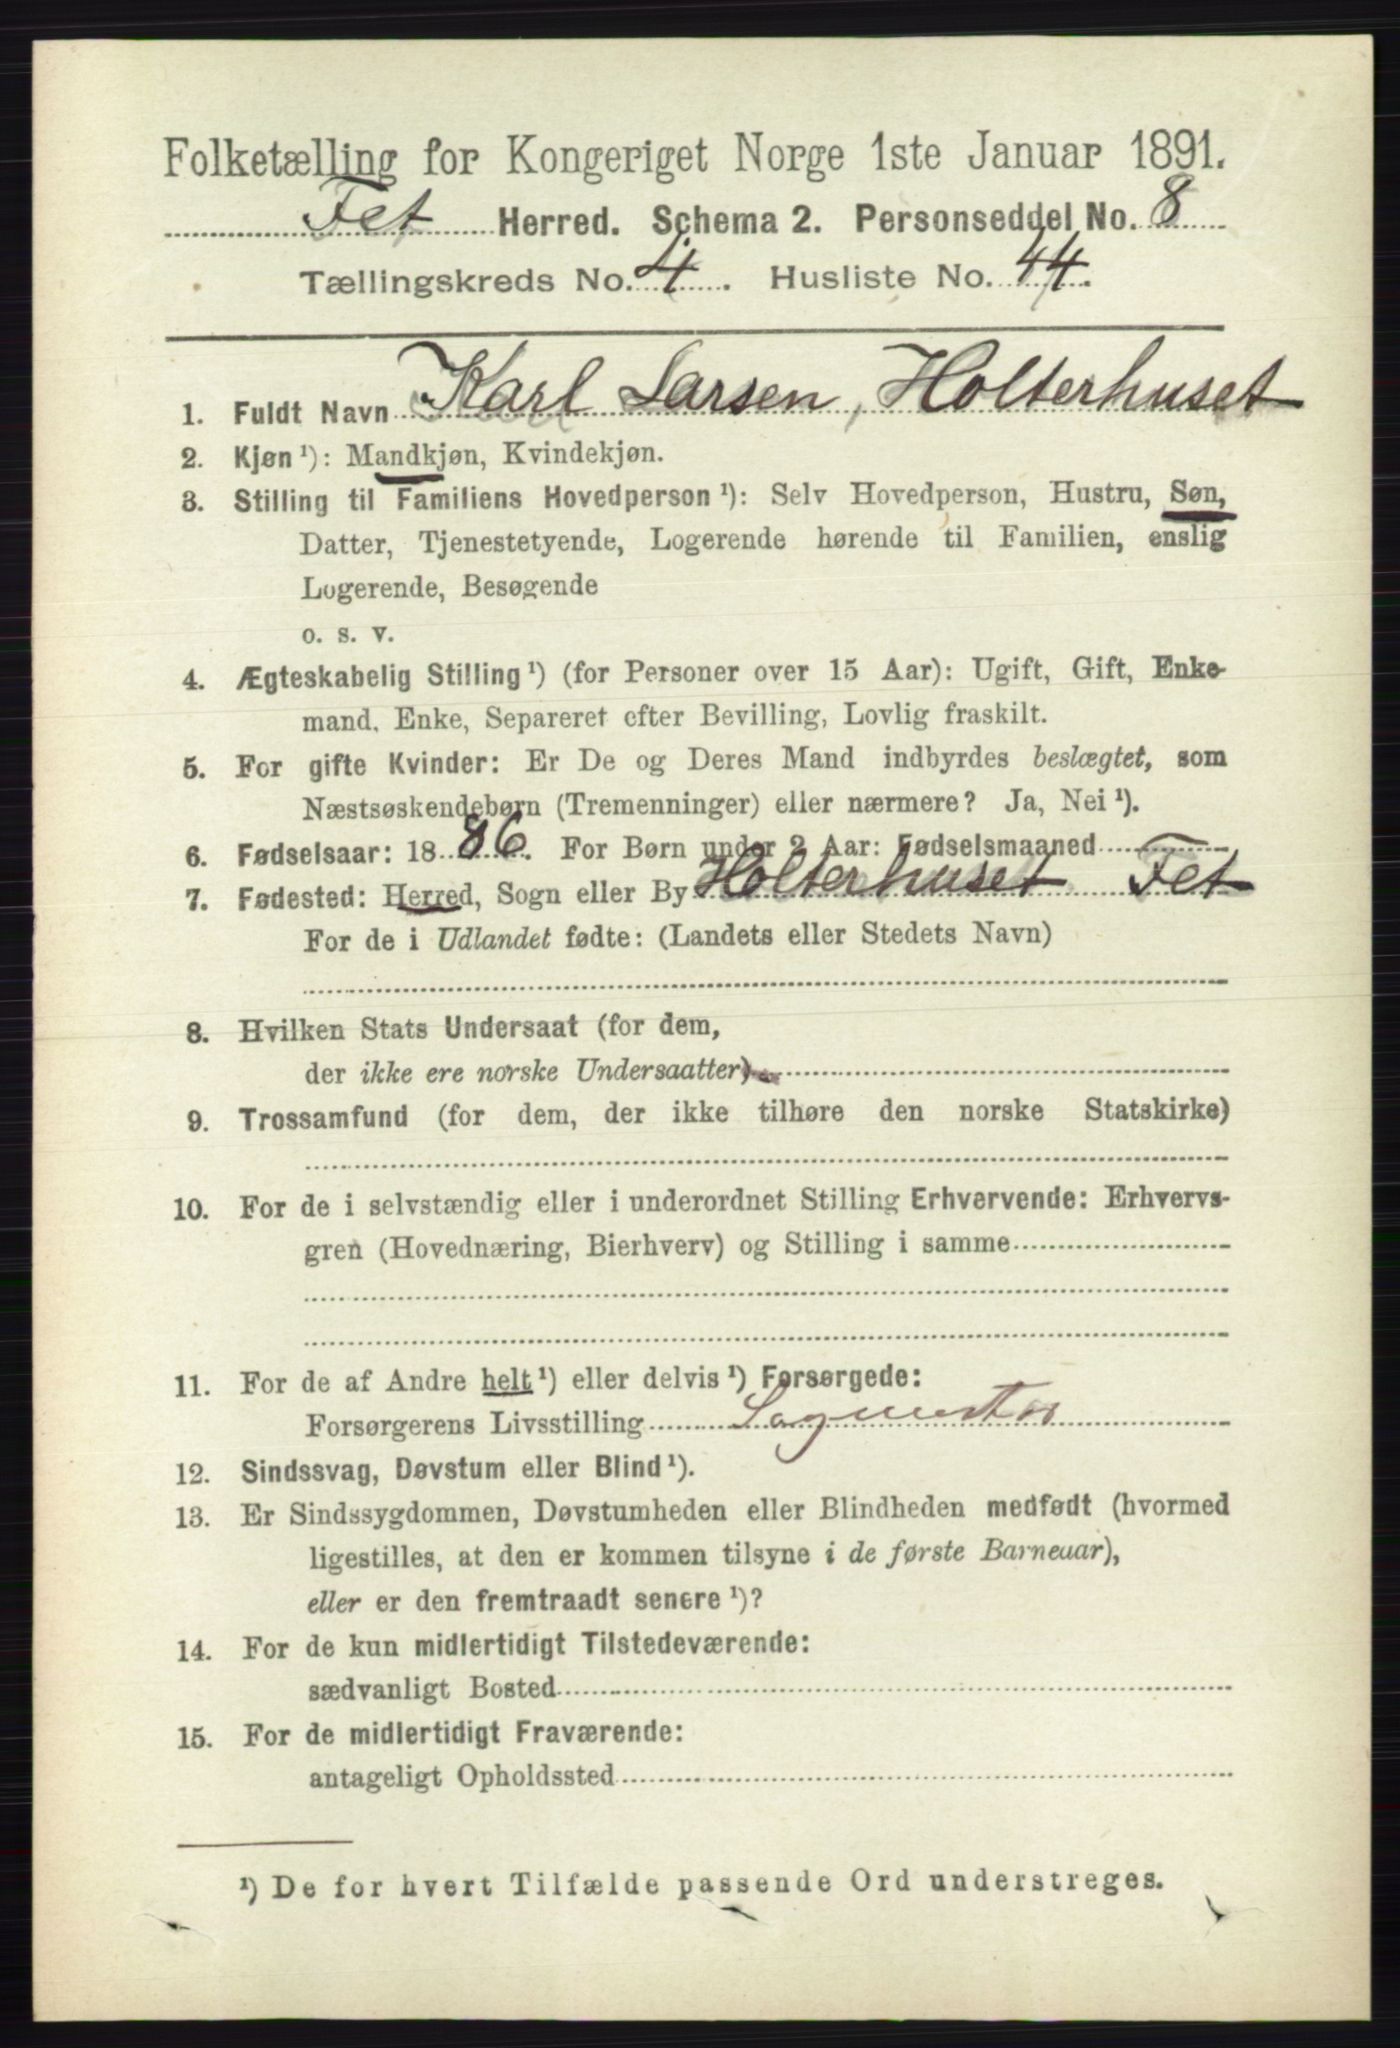 Folketælling for Kongeriget Norge 1ste Januar 1891.
Fet Herred. Schema 2. Personseddel No. 8
Tællingskreds No. 4. Husliste No. 44.
1. Fuldt Navn Karl Larsen, Holterhuset
2. Kjøn ¹): Mandkjøn, Kvindekjøn.
3. Stilling til Familiens Hovedperson ¹): Selv Hovedperson, Hustru, Søn,
Datter, Tjenestetyende, Logerende hørende til Familien, enslig
Logerende, Besøgende
o. s. v.
4. Ægteskabelig Stilling ¹) (for Personer over 15 Aar): Ugift, Gift, Enke-
mand, Enke, Separeret efter Bevilling, Lovlig fraskilt.
5. For gifte Kvinder: Er De og Deres Mand indbyrdes beslægtet, som
Næstsøskendebørn (Tremenninger) eller nærmere? Ja, Nei ¹).
6. Fødselsaar: 1886. For Børn under 2 Aar: Fødselsmaaned
7. Fødested: Herred, Sogn eller By Holterhuset Fet
For de i Udlandet fødte: (Landets eller Stedets Navn)
8. Hvilken Stats Undersaat (for dem,
der ikke ere norske Undersaatter)
9. Trossamfund (for dem, der ikke tilhøre den norske Statskirke)
10. For de i selvstændig eller i underordnet Stilling Erhvervende: Erhvervs-
gren (Hovednæring, Bierhverv) og Stilling i samme
11. For de af Andre helt ¹) eller delvis ¹) Forsørgede:
Forsørgerens Livsstilling Sagmester
12. Sindssvag, Døvstum eller Blind ¹).
13. Er Sindssygdommen, Døvstumheden eller Blindheden medfødt (hvormed
ligestilles, at den er kommen tilsyne i de første Barneaar),
eller er den fremtraadt senere ¹)?
14. For de kun midlertidigt Tilstedeværende:
sædvanligt Bosted
15. For de midlertidigt Fraværende:
antageligt Opholdssted
¹) De for hvert Tilfælde passende Ord understreges.